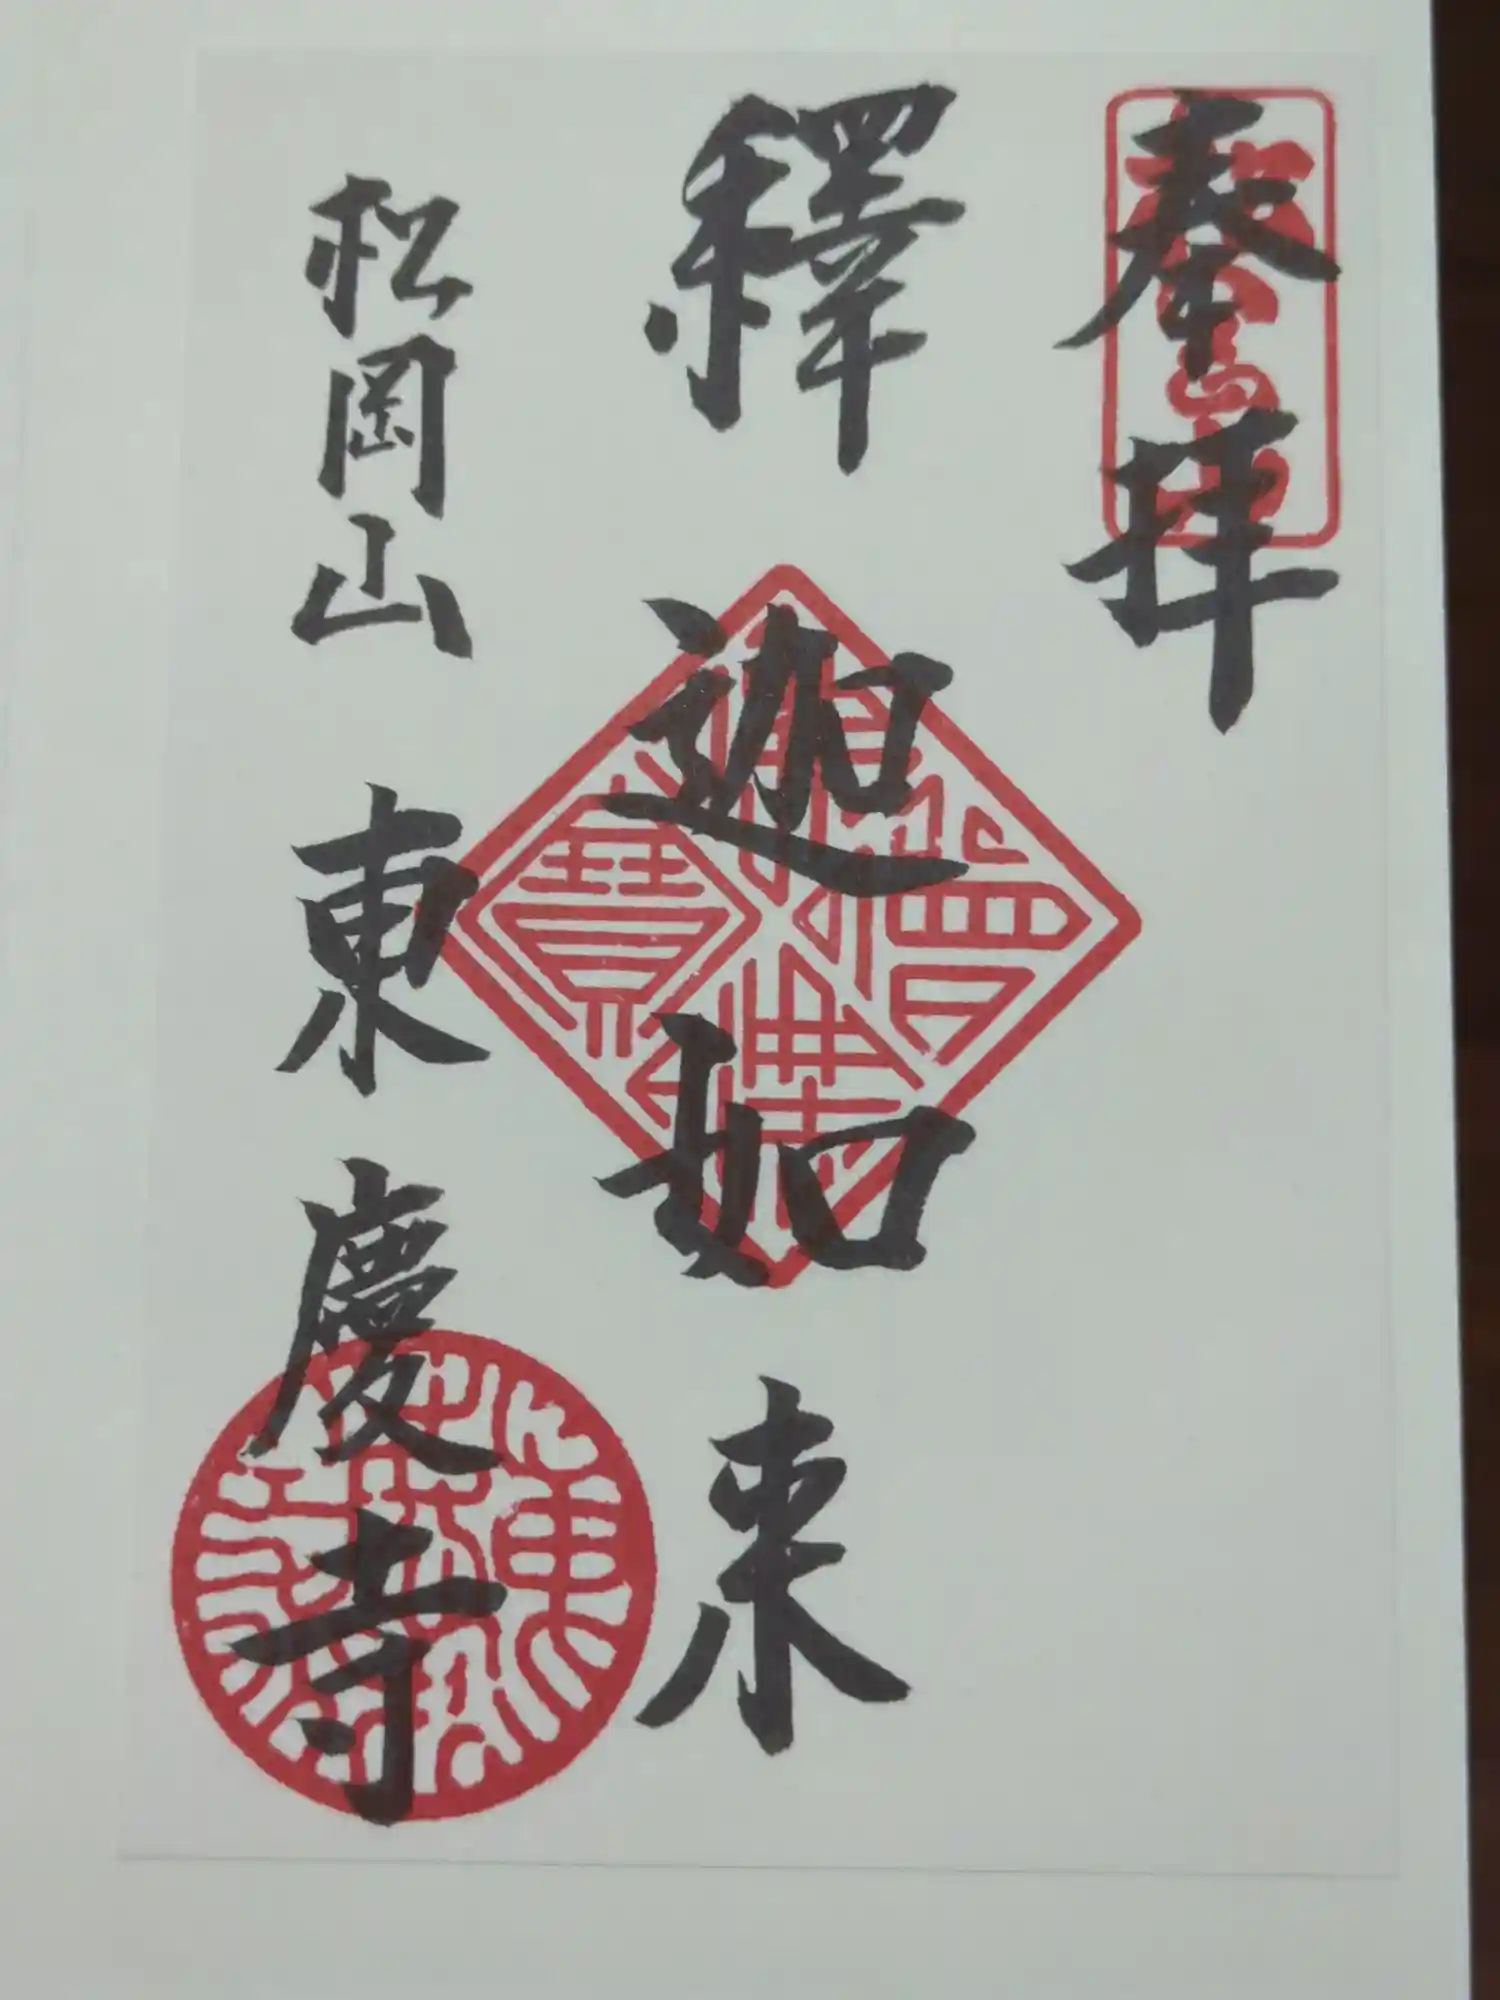 奉拝
釋迦如来
松岡山東慶寺